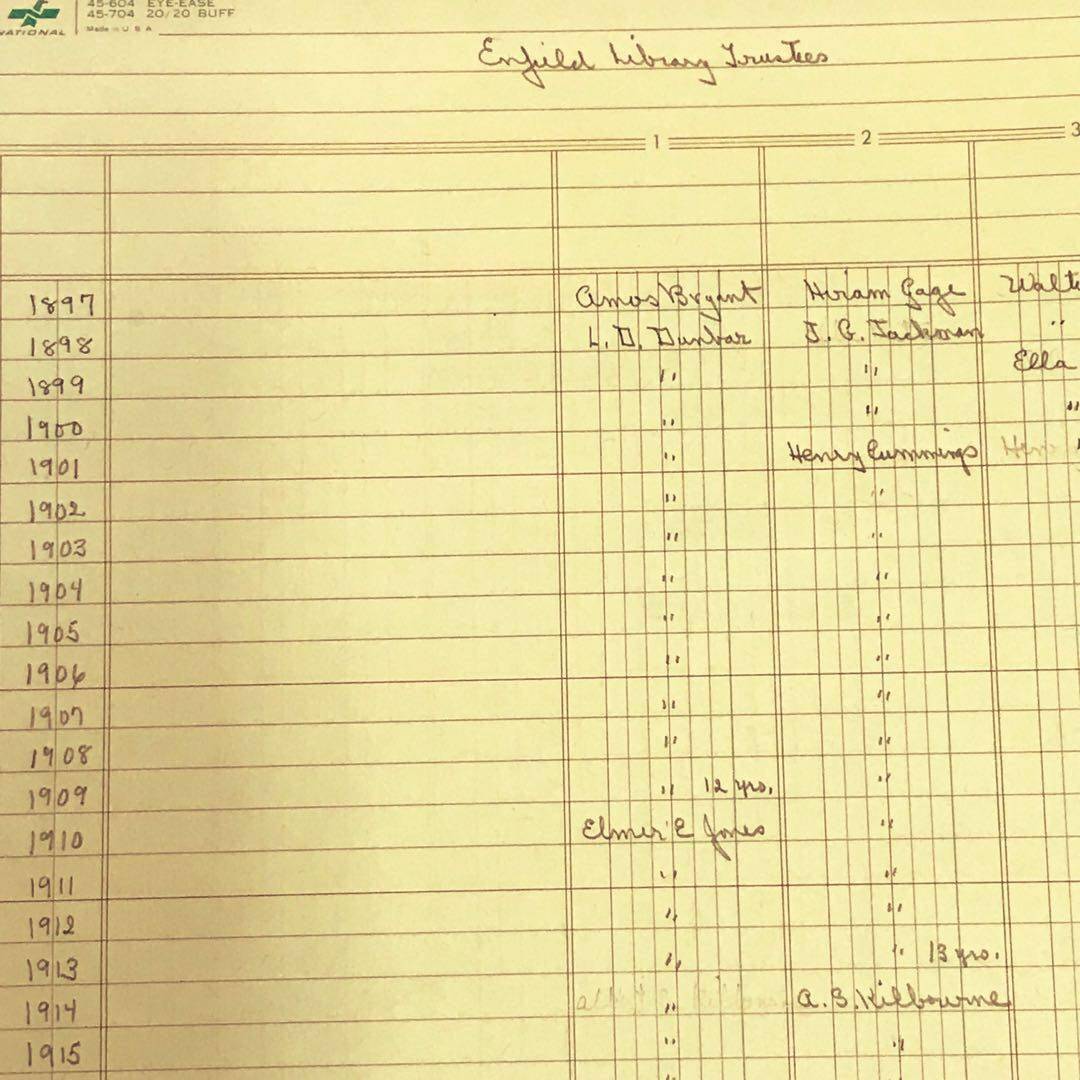 45-604 EYE-EASE
45-704 20/20 BUFF
NATIONAL Made in U S A
Enfield Library Trustees
1 2 3
1897 Amos Bryant Hiram Gage Walte
1898 L. D. Dunbar J. G. Jackman "
1899 " " Ella
1900 " " "
1901 " Henry Cummings "
1902 " "
1903 " "
1904 " "
1905 " "
1906 " "
1907 " "
1908 " "
1909 " 12 yrs. "
1910 Elmer E Jones "
1911 " "
1912 " "
1913 " " 13 yrs.
1914 " A. B. Kilbourne
1915 " "
"